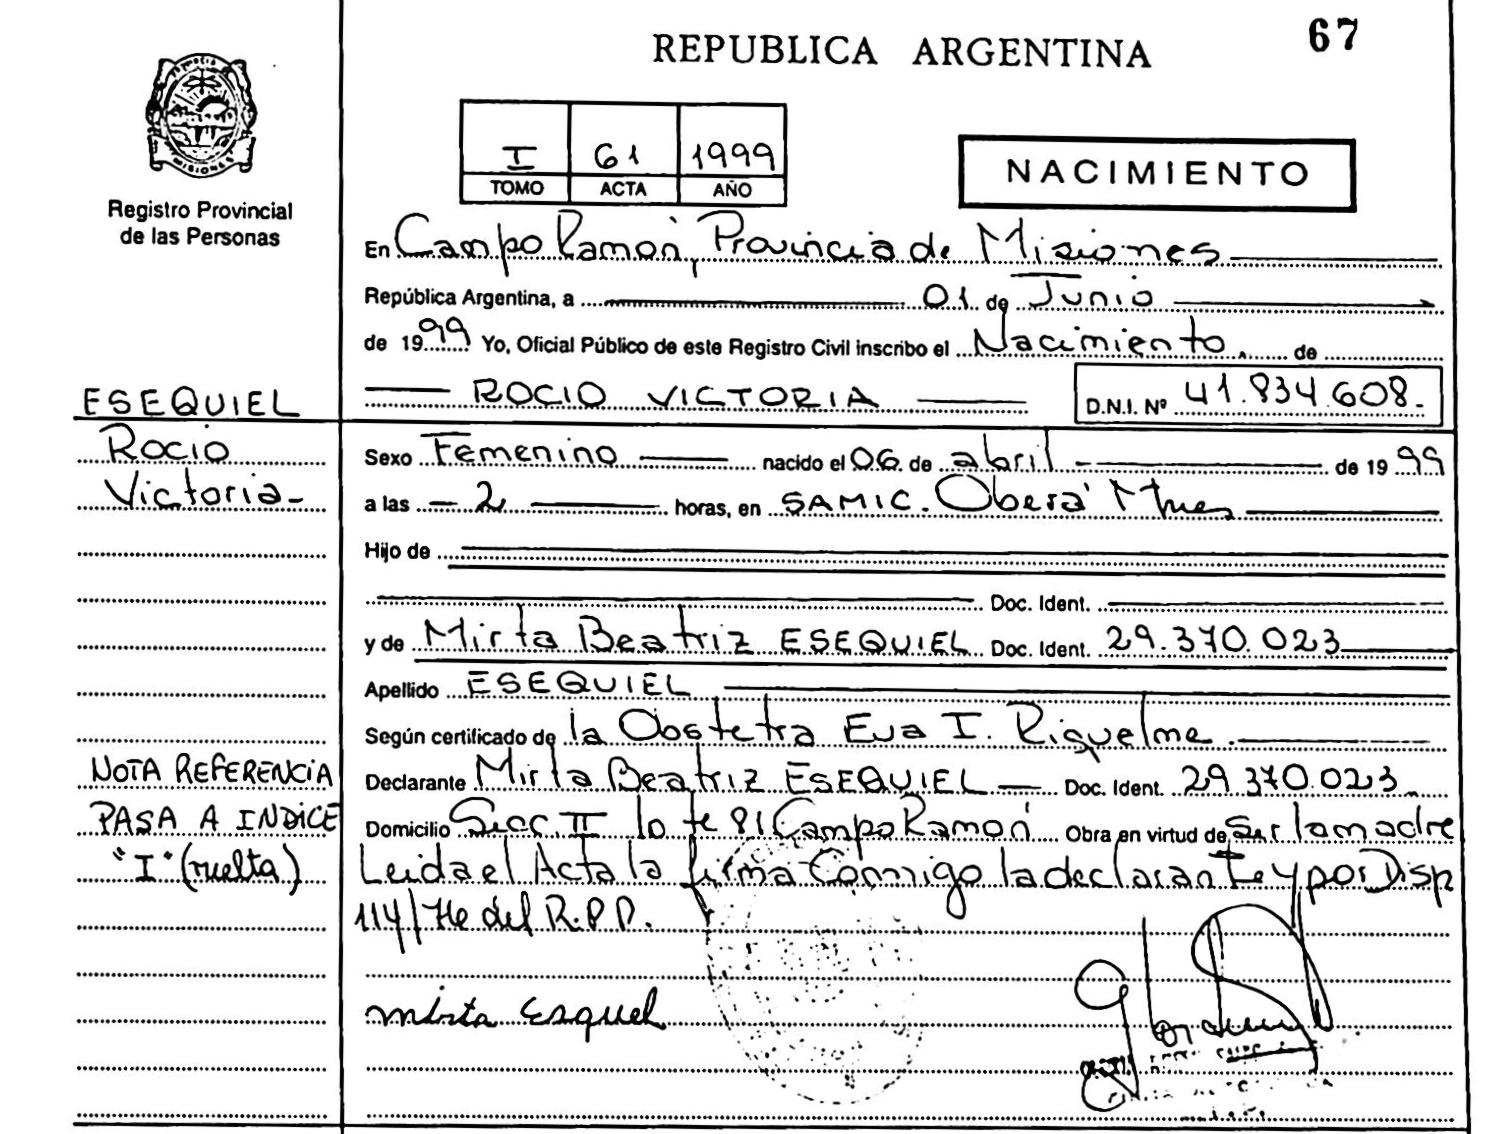 67
REPUBLICA ARGENTINA
MISIONES
Registro Provincial
de las Personas
I 61 1999
TOMO ACTA AÑO
NACIMIENTO
En Campo Ramón, Provincia de Misiones
República Argentina, a 01 de Junio
de 1999 Yo, Oficial Público de este Registro Civil inscribo el Nacimiento. de
ROCIO VICTORIA D.N.I. Nº 41.834.608.-
ESEQUIEL
Rocio
Victoria-
Sexo Femenino nacido el 06 de abril de 1999
a las 2 horas, en SAMIC. Oberá Mnes
Hijo de
Doc. Ident.
y de Mirta Beatriz ESEQUIEL Doc. Ident. 29.370.023
Apellido ESEQUIEL
Según certificado de la Obstetra Eva I. Riquelme
NOTA REFERENCIA
PASA A INDICE
"I" (vuelta)
Declarante Mirta Beatriz ESEQUIEL Doc. Ident. 29.370.023
Domicilio Secc. II lote 81 Campo Ramón Obra en virtud de Ser la madre
Leida el Acta la firma Conmigo la declarante y por Disp
114/ del R.P.P.
mirta Esquel